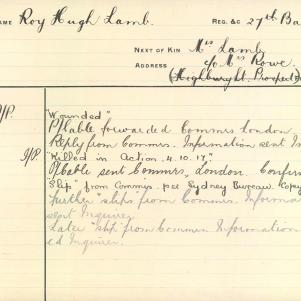 NAME Roy Hugh Lamb. REG. &c 27th Ba
NEXT OF KIN Mrs Lamb
ADDRESS c/o Mrs Rowe
"Wounded"
P/P able forwarded Commrs London.
Reply from Commrs. Information sent In
"Killed in Action. 4.10.17."
sent Commrs, London. Confir
Slip" from Commrs. per Sydney Bureau. Copy
further slips from Commrs. Informa
sent Inquirer
Later slip from Commrs Information
ed Inquirer.